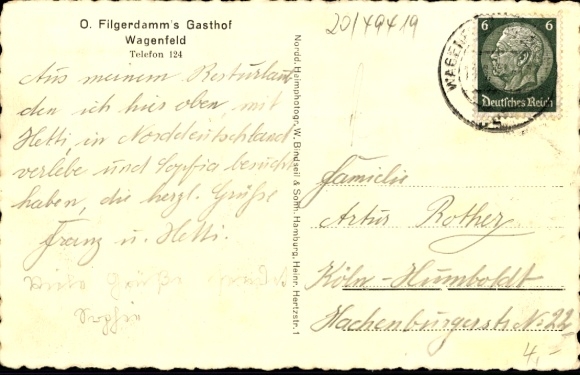 O. Filgerdamm's Gasthof
Wagenfeld
Telefon 124
Aus meinem Resturlaub
den ich hier oben, mit
Hetti, in Norddeutschland
verlebe und Sophia besucht
haben, die herzl. Grüße
Franz u. Hetti.
Grüße
Nordd. Heimphotogr. W. Bindseil & Sohn, Hamburg, Heinr. Hertzstr. 1
20/4949
6 6
Deutsches Reich
WAGENF
Familie
Artur Rother
Köln-Humboldt
Hachenburgerstr No: 22
4,-